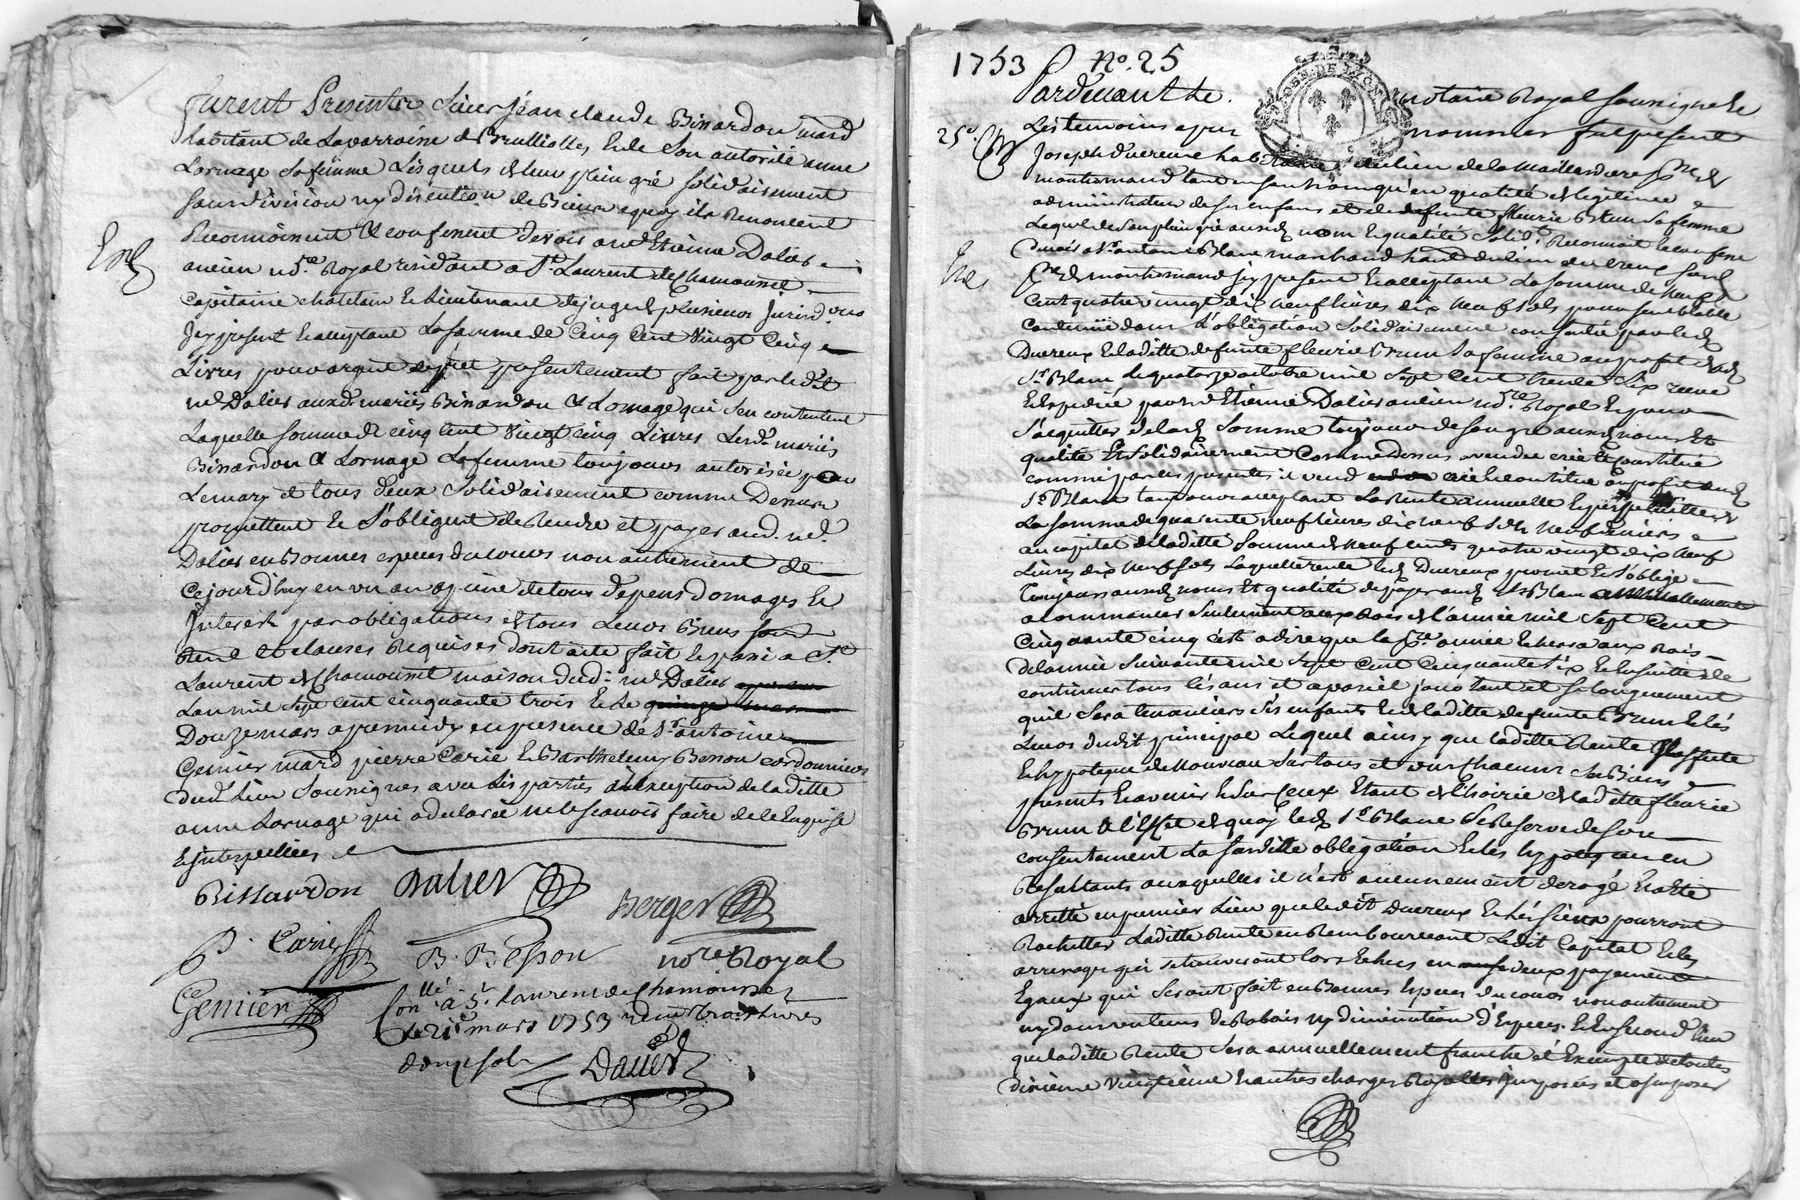 furent Presents Sieur Jean claude Bissardon mard
habitant de Lavarraine de Brulliolles Et de Son autorité anne
Lornage Sa femme Lesquels de leur plein gré solidairement
sans division ny discution de Biens aquoy ils Renoncent
Reconnoissent & confessent devoir a me Etienne Dalier
Eng
ancien nore Royal residant a St Laurent de Chamousset
Capitaine chatelain Et Lieutenant de juge de plusieurs Juridons
Jcy present Et acceptant La somme de Cinq Cent Vingt Cinq
Livres pour argent de pret presentement fait par ledit
me Dalier auxd. mariés Bissardon & Lornage qui s'en contentent
Laquelle somme de cinq Cent Vingt Cinq Livres Lesd. mariés
Bissardon & Lornage La femme toujours autorisée par
Le mary et tous deux Solidairement comme Dessus
promettent Et S'obligent de Rendre et payer aud. me.
Dalier en Bonnes especes du cours non autrement de
Ce jourd'huy en un an a peine de tous depens domages Et
Interest par obligations de tous Leurs Biens
Renl et clauses Requises dont acte fait Et passé a St
Laurent de Chamousset maison dud. me Dalier
L'an mil Sept Cent cinquante trois Et Le quinze mars
Douze mars apres midy en presence de Sr antoine
Genier mard pierre Carié Et Barthelemy Besson cordonniers
dud. Lieu Soussignés avec Les parties a l'exception de laditte
anne Lornage qui a declaré ne le scavoir faire de ce Enquise
Et Interpellée
Bissardon Dalier Berger
P. Carié B. Besson nore Royal
Genier
Conllé a St Laurent de Chamousset
Le 21e mars 1753 recu trois Livres
douze sols Dalier
1753 No. 25
Pardevant Le notaire Royal soussigné Et
GEN DE LYON
25e
Les temoins apres nommés fut present
Joseph Ducreux habitant du lieu de la Maillardiere psse de
montromand tant en son nom qu'en qualité de legitime
administrateur de ses enfans et de defunte fleurie Brun Sa femme
Lequel de son plein gré auxd. nom Et qualité Solidt. Reconnoit Et confesse
Devoir a Sr. antoine Blanc marchand
Eng
psse de montromand Jcy present Et acceptant La somme de neuf
Cent quatre vingt dix neuf livres dix neuf sols pour semblable
contenue dans L'obligation Solidairement consentie par led.
Ducreux Et laditte defunte fleurie Brun Sa femme au profit dud.
Sr. Blanc Le quatorze octobre mil Sept Cent trente Six receue
Et Expediée par me Etienne Dalier ancien nore Royal Et pour
S'acquitter de lad. Somme toujours de son gré auxd. noms Et
qualité Et Solidairement Comme Dessus a vendu créé Et constitué
comme par ces presentes il vend crée Et constitue au profit dud.
Sr. Blanc toujours acceptant La Rente annuelle Et perpetuelle de
La somme de quarante neuf livres dix neuf sols neuf deniers
au capital de laditte Somme de neuf cents quatre vingt dix neuf
Livres dix neuf sols Laquelle rente led. Ducreux promet Et s'oblige
toujours auxd. noms Et qualité de payer aud. Sr. Blanc annuellement
a commencer Seulement aux Rois de L'année mil Sept Cent
Cinquante cinq c'est a dire que la pre. année Echera aux Rois
de l'année Suivante mil Sept Cent Cinquante Six Et Ensuitte de
continuer tous les ans et a pareil jour tant et si longuement
qu'il Sera tenanciers Ses enfants Et de laditte defunte Brun Et les
Leurs dudit principal Lequel ainsy que laditte Rente
Et hypoteque de nouveau Sur tous et un chacuns Ses Biens
presents Et avenir Et Sur Ceux Etant de l'hoirie de laditte fleurie
Brun A l'Effet de quoy led. Sr. Blanc Se Reserve de Son
consentement La Susditte obligation Et les hypoteques en
Resultants auxquelles il n'est aucunement derogé Et a Eté
arretté en premier Lieu que ledit Ducreux Et les Siens pourront
Rachetter Laditte Rente en Remboursant Ledit Capital Et les
arrerages qui se trouveront lors Echus en deux payements
Egaux qui Seront fait en Bonnes Especes du cours non autrement
nydans un tems de Rabais ny diminution d'Especes. Et En Second Lieu
que laditte Rente Sera annuellement franche et Exempte de toutes
dixieme vingtieme Et autres charges Royalles Imposées et a Imposer